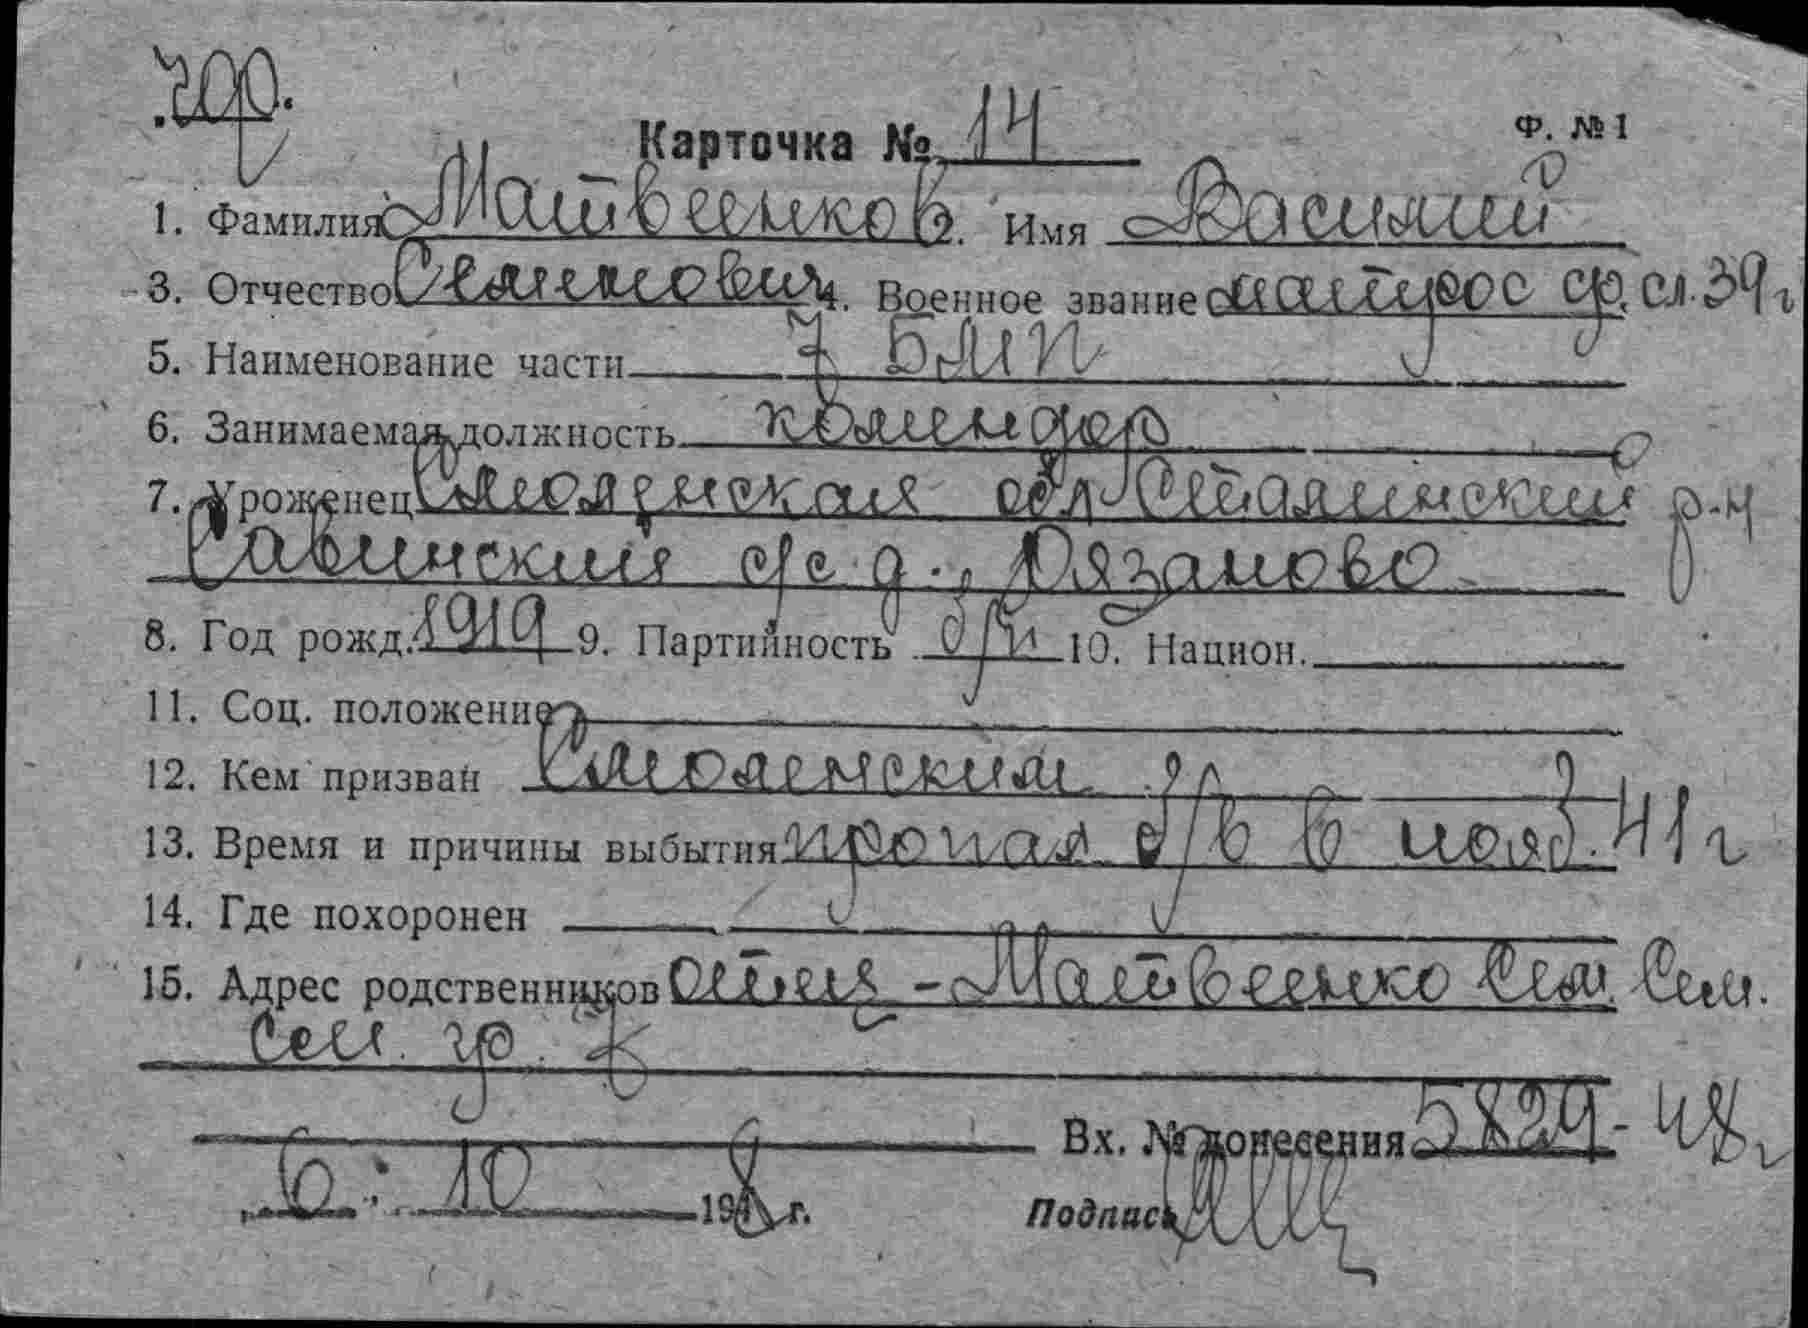 Карточка № 14
Ф. № 1
1. Фамилия Матвеенков 2. Имя Василий
3. Отчество Семенович 4. Военное звание матрос ср. сл. 39 г
5. Наименование части 7 БМП
6. Занимаемая должность комендор
7. Уроженец Смоленская обл Сталинский р-н
Савинский с/с д., Рязаново
8. Год рожд. 1919 9. Партийность б/п 10. Национ.
11. Соц. положение
12. Кем призван Смоленским
13. Время и причины выбытия пропал б/в в нояб. 41 г
14. Где похоронен
15. Адрес родственников отец - Матвеенко Сем. Сем.
Вх. № донесения 5829 - 48 г
6. 10 1948 г.
Подпись